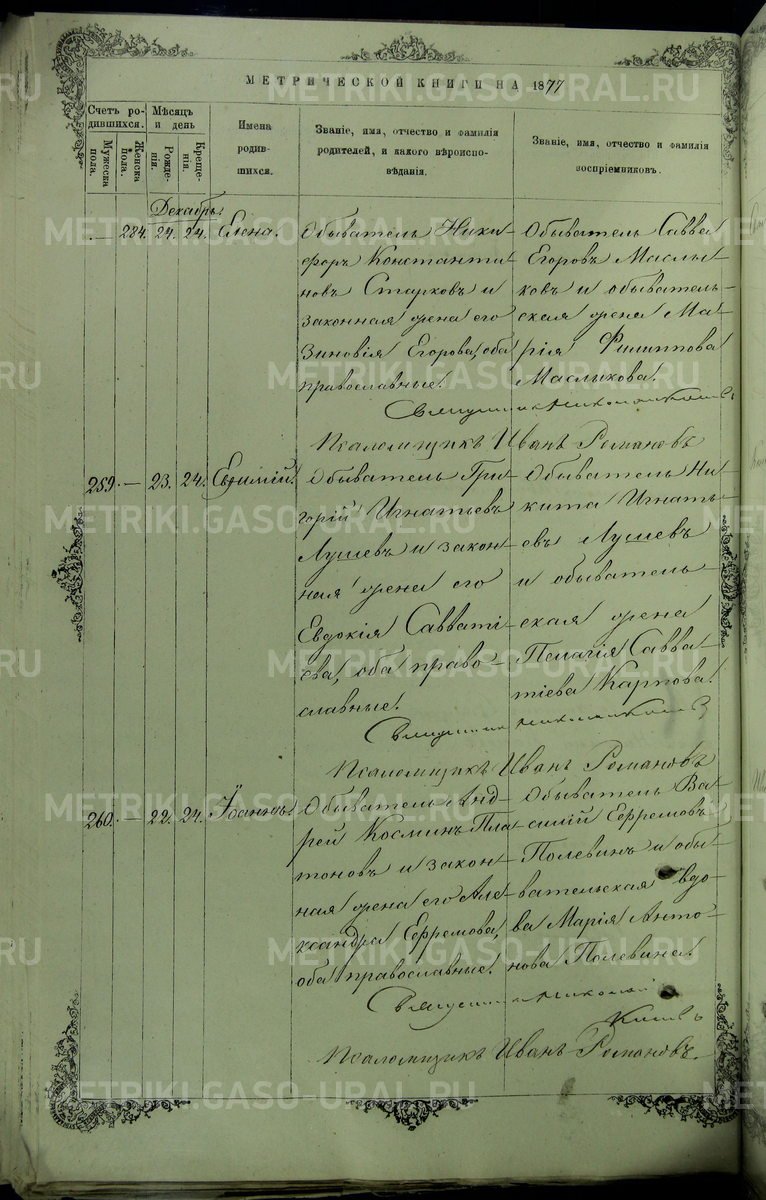 МЕТРИЧЕСКОЙ КНИГИ НА 1877
Счетъ ро-
дившихся.
Мужеска
пола.
Женска
пола.
Мѣсяцъ
и день
Рожде-
нія.
Креще-
нія.
Имена
родив-
шихся.
Званіе, имя, отчество и фамилія
родителей, и какого вѣроиспо-
вѣданія.
Званіе, имя, отчество и фамилія
воспріемниковъ.
Декабрь.
— 284. 24. 24. Елена.
Обыватель Ники-
форъ Константи-
новъ Старковъ и
законная жена его
Зиновія Егорова, оба
православные.
Обыватель Савва
Егоровъ Маслы-
ковъ и обыватель-
ская жена Ма-
рія Филиппова
Масликова.
Священникъ
Псаломщикъ Иванъ Романовъ
259. — 23. 24. Евѳимій.
Обыватель Гри-
горій Игнатьевъ
Лушевъ и закон-
ная жена его
Евдокія Савваті-
ева, оба право-
славные.
Обыватель Ни-
кита Игнать-
евъ Лушевъ
и обыватель-
ская жена
Пелагія Савва-
тіева Карпова.
Священникъ
Псаломщикъ Иванъ Романовъ
260. — 22. 24. Іоаннъ.
Обыватель Анд-
рей Косминъ Пла-
тоновъ и закон-
ная жена его Але-
ксандра Ефремова,
оба православные.
Обыватель Ва-
силій Ефремовъ
Полевинъ и обы-
вательская вдо-
ва Марія Анто-
нова Полевина.
Священникъ Николай
Псаломщикъ Иванъ Романовъ.
METRIKI.GASO-URAL.RU